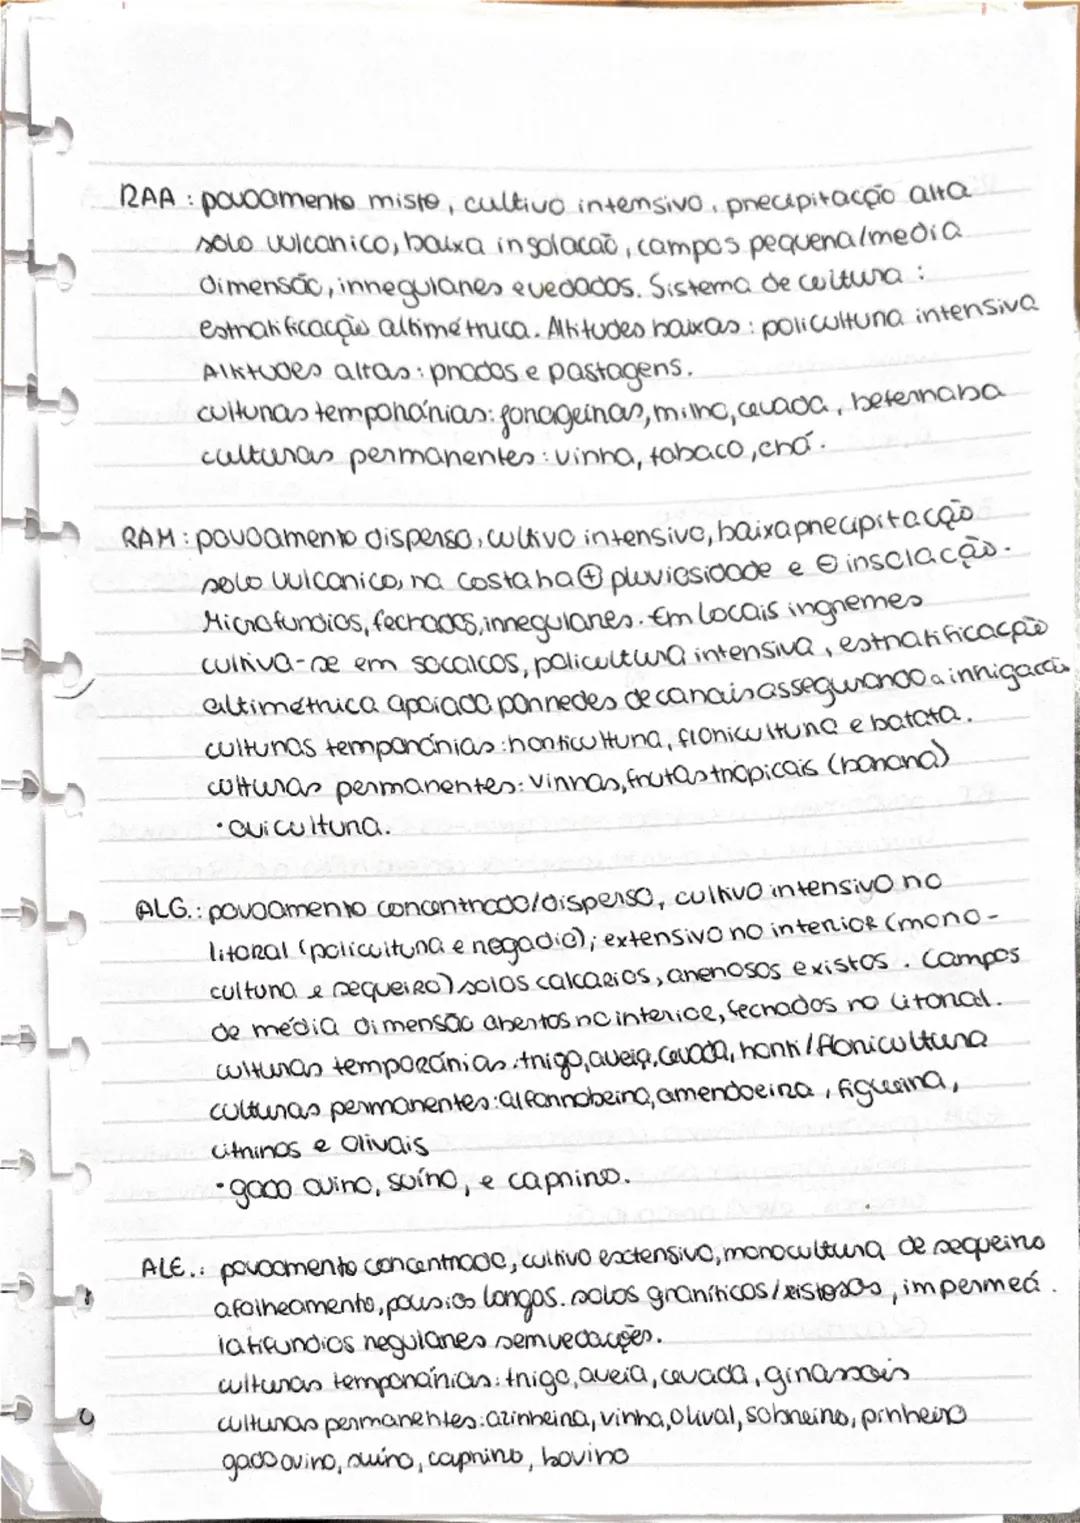 RAA : povoamento misto, cultivo intensivo, precipitacção alta
solo vulcanico, baixa insolacaõ, campos pequena/media
dimensão, irregulares e vedados. Sistema de cultura :
estratificacção altimétrica. Altitudes baixas : policultura intensiva
Altitudes altas : prados e pastagens.
culturas temporárias: forrageiras, milho, cevada, beterraba
culturas permanentes : vinha, tabaco, chá.
RAM : povoamento disperso, cultivo intensivo, baixa precipitacção
solo vulcanico, na costa ha ⊕ pluviosidade e ⊖ insolacção.
Microfundios, fechados, irregulares. Em locais ingremes
cultiva-se em socalcos, policultura intensiva, estratificacção
altimétrica apoiada por redes de canais assegurando a irrigacão
culturas temporárias : horticultura, floricultura e batata.
culturas permanentes: vinhas, frutas tropicais (banana)
• avicultura.
ALG. : povoamento concentrado/disperso, cultivo intensivo no
litoral (policultura e regadio); extensivo no interior (mono-
cultura e sequeiro) solos calcarios, arenosos e xistos. Campos
de média dimensão abertos no interior, fechados no litoral.
culturas temporárias : trigo, aveia, cevada, horti/floricultura
culturas permanentes: alfarrobeira, amendoeira, figueira,
citrinos e olivais
• gado ovino, suíno, e caprino.
ALE. : povoamento concentrado, cultivo exctensivo, monocultura de sequeiro
afolheamento, pousios longos. solos graníticos/xistosos, impermeá.
latifundios regulares sem vedacções.
culturas temporárias: trigo, aveia, cevada, girassois
culturas permanentes: azinheira, vinha, olival, sobreiro, pinheiro
gado ovino, suíno, caprino, bovino